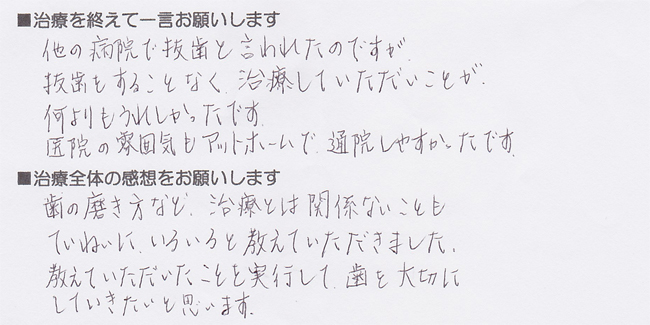 ■治療を終えて一言お願いします
他の病院で抜歯と言われたのですが、
抜歯をすることなく、治療していただいことが、
何よりもうれしかったです。
医院の雰囲気もアットホームで、通院しやすかったです。
■治療全体の感想をお願いします
歯の磨き方など、治療とは関係ないことも
ていねいに、いろいろと教えていただきました。
教えていただいたことを実行して、歯を大切に
していきたいと思います。